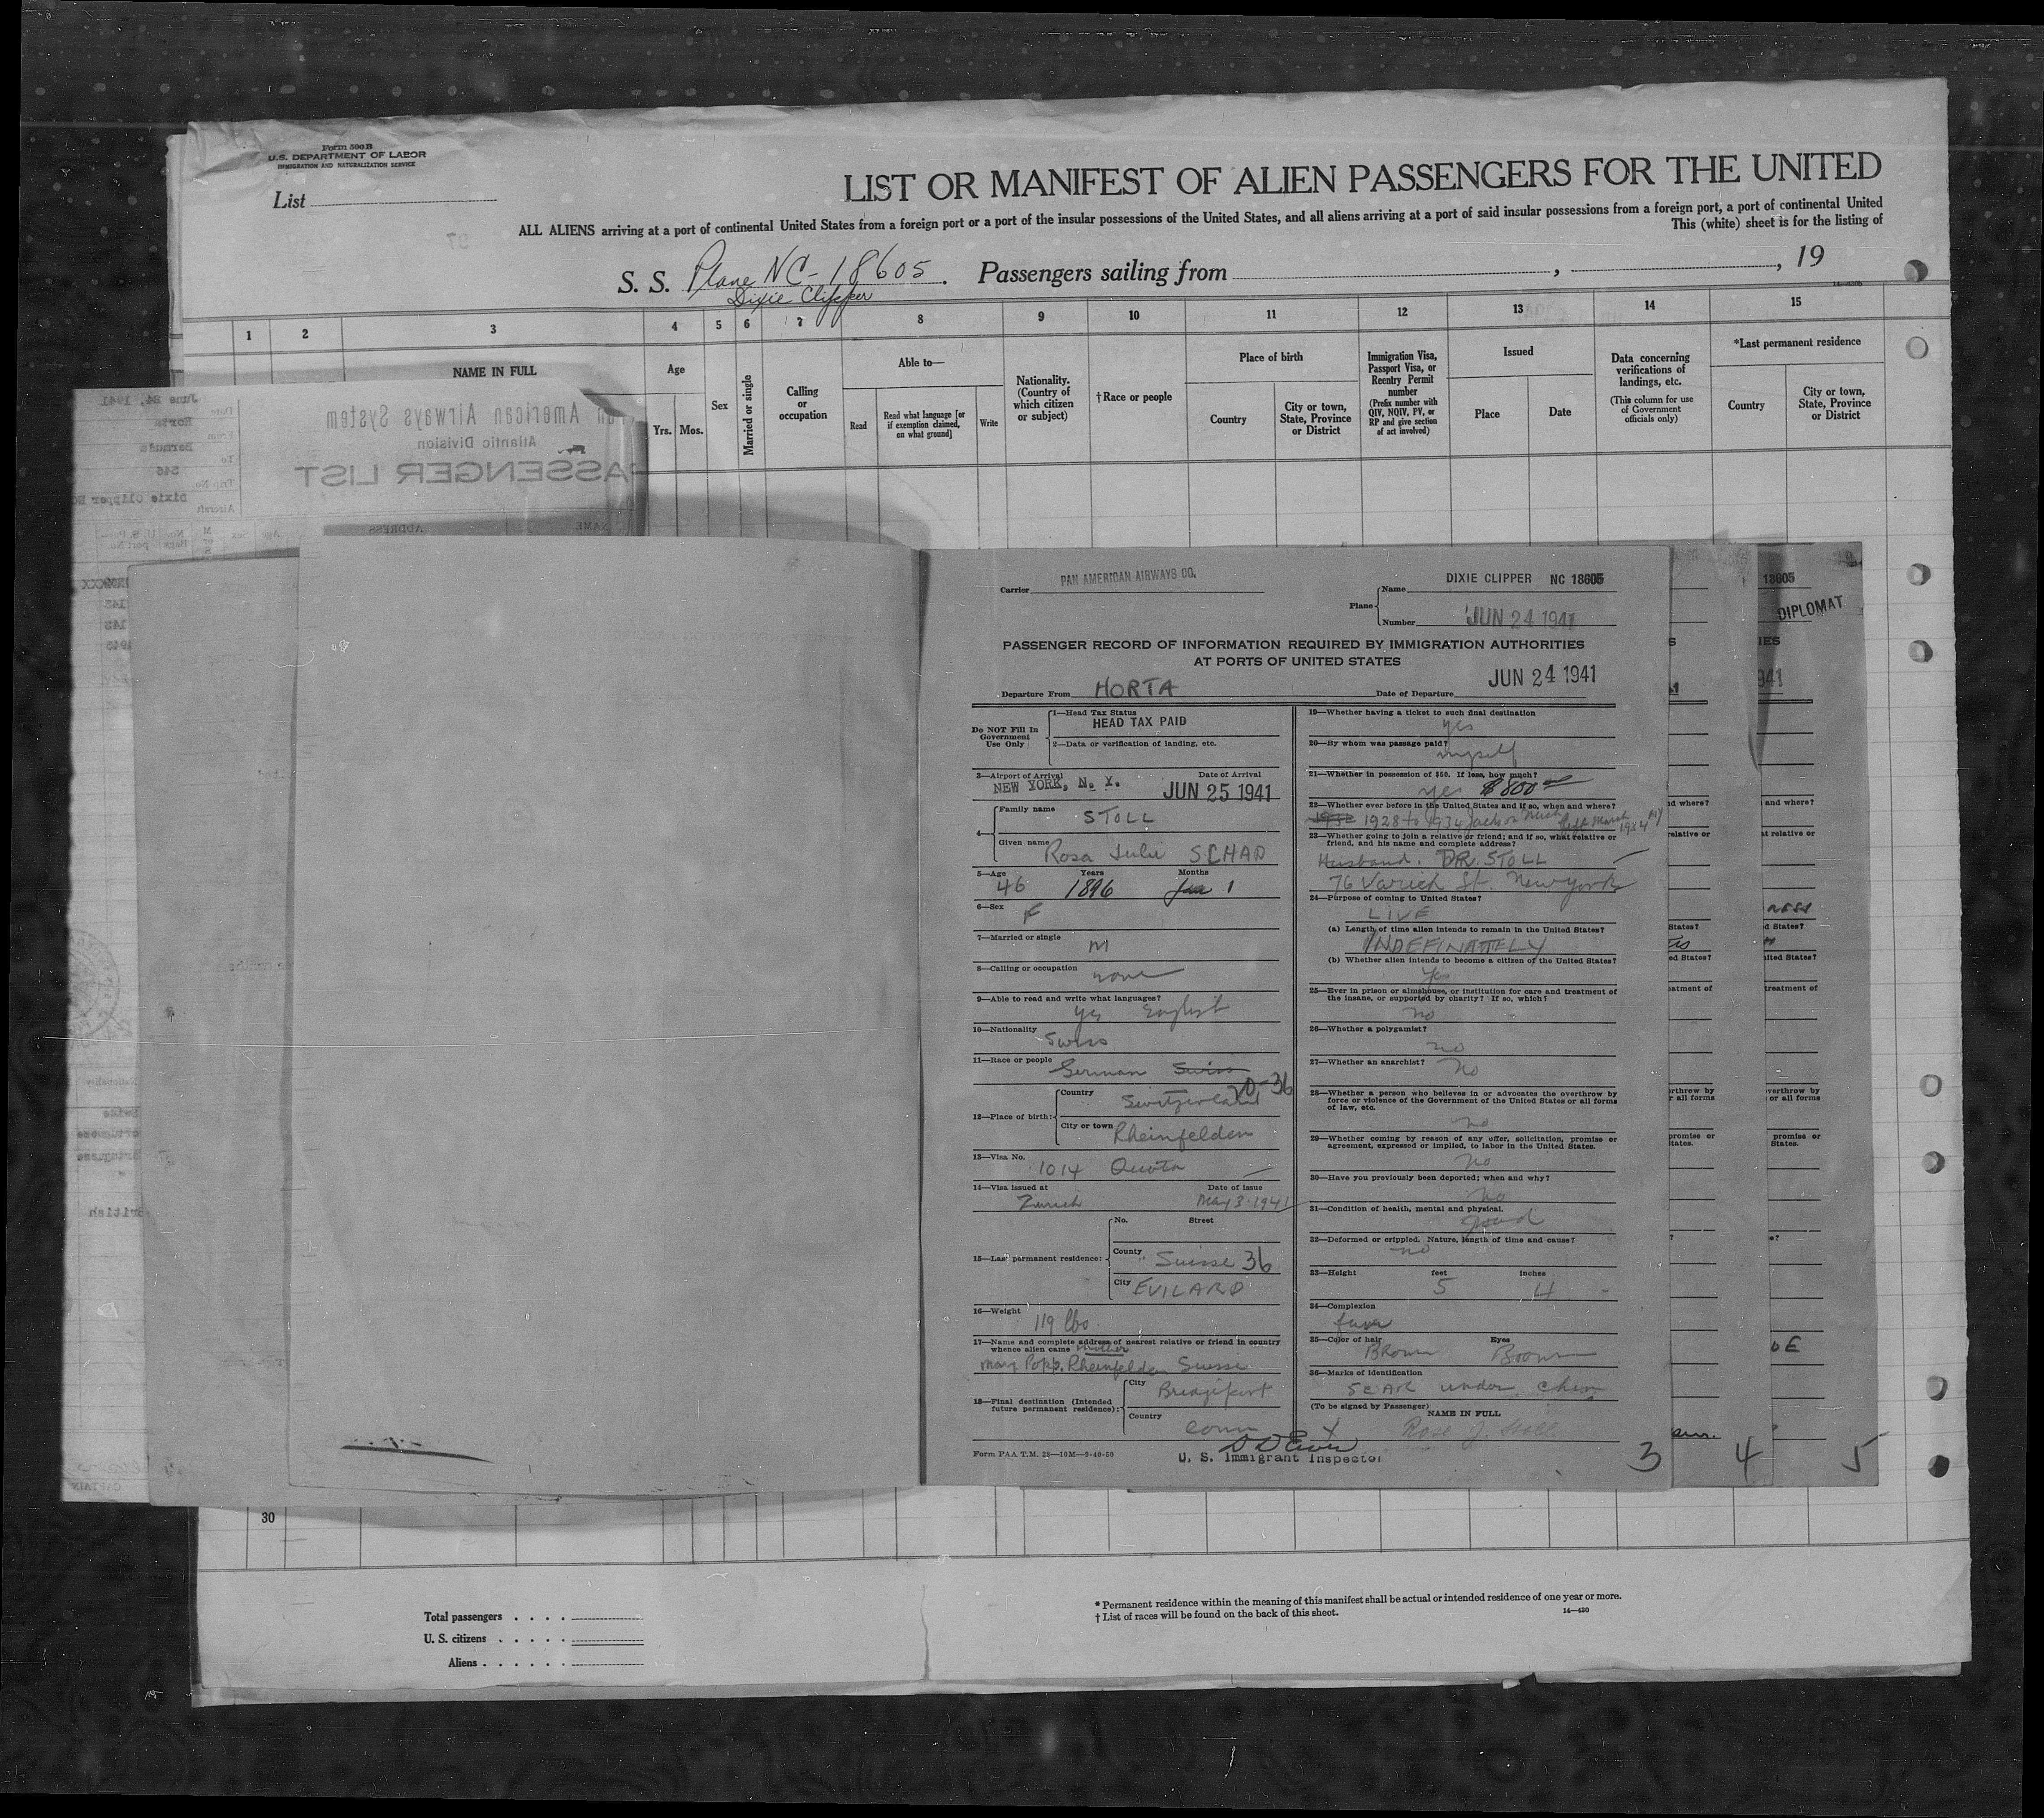 Form 500B
U.S. DEPARTMENT OF LABOR
IMMIGRATION AND NATURALIZATION SERVICE
List
LIST OR MANIFEST OF ALIEN PASSENGERS FOR THE UNITED
ALL ALIENS arriving at a port of continental United States from a foreign port or a port of the insular possessions of the United States, and all aliens arriving at a port of said insular possessions from a foreign port, a port of continental United
This (white) sheet is for the listing of
S. S. Plane NC-18605. Passengers sailing from , , 19
Dixie Clipper
1 2 3 4 5 6 7 8 9 10 11 12 13 14 15
NAME IN FULL
Age
Yrs. Mos.
Sex
Married or single
Calling or occupation
Able to—
Read
Read what language [or if exemption claimed, on what ground]
Write
Nationality. (Country of which citizen or subject)
†Race or people
Place of birth
Country
City or town, State, Province or District
Immigration Visa, Passport Visa, or Reentry Permit number
(Prefix number with QIV, NQIV, PV, or RP and give section of act involved)
Issued
Place
Date
Data concerning verifications of landings, etc.
(This column for use of Government officials only)
*Last permanent residence
Country
City or town, State, Province or District
June 24, 1941
Date
Horta
From
Bermuda
To
346
Trip No.
Dixie Clipper
Aircraft
American Airways System
Atlantic Division
PASSENGER LIST
NAME
ADDRESS
Age
Sex
Carrier PAN AMERICAN AIRWAYS CO.
Plane
Name DIXIE CLIPPER NC 18605
Number JUN 24 1941
PASSENGER RECORD OF INFORMATION REQUIRED BY IMMIGRATION AUTHORITIES
AT PORTS OF UNITED STATES
Departure From HORTA Date of Departure JUN 24 1941
Do NOT Fill In
Government
Use Only
1—Head Tax Status
HEAD TAX PAID
2—Data or verification of landing, etc.
3—Airport of Arrival Date of Arrival
NEW YORK, N. Y. JUN 25 1941
4—
Family name STOLL
Given name Rosa Julie SCHAD
5—Age Years Months
46 1896 1
6—Sex F
7—Married or single M
8—Calling or occupation none
9—Able to read and write what languages?
yes English
10—Nationality
Swiss
11—Race or people
German Swiss
20-36
12—Place of birth:
Country Switzerland
City or town Rheinfelden
13—Visa No.
1014 Quota
14—Visa issued at Date of issue
Zurich May 3 1941
15—Last permanent residence:
No. Street
County Suisse 36
City EVILARD
16—Weight
119 lbs
17—Name and complete address of nearest relative or friend in country
whence alien came mother
Mary Popp. Rheinfelden Suisse
18—Final destination (Intended
future permanent residence):
City Bridgeport
Country Conn
Form PAA T.M. 28—10M—9-40-50
U. S. Immigrant Inspector
19—Whether having a ticket to such final destination
yes
20—By whom was passage paid?
myself
21—Whether in possession of $50. If less, how much?
yes $800
22—Whether ever before in the United States and if so, when and where?
1932 1928 to 1934 Jackson Mich left March 1934 NY
23—Whether going to join a relative or friend; and if so, what relative or
friend, and his name and complete address?
Husband. DR. STOLL
76 Varick St. New York
24—Purpose of coming to United States?
LIVE
(a) Length of time alien intends to remain in the United States?
INDEFINATELY
(b) Whether alien intends to become a citizen of the United States?
Yes
25—Ever in prison or almshouse, or institution for care and treatment of
the insane, or supported by charity? If so, which?
no
26—Whether a polygamist?
no
27—Whether an anarchist?
No
28—Whether a person who believes in or advocates the overthrow by
force or violence of the Government of the United States or all forms
of law, etc.
no
29—Whether coming by reason of any offer, solicitation, promise or
agreement, expressed or implied, to labor in the United States.
No
30—Have you previously been deported; when and why?
No
31—Condition of health, mental and physical.
good
32—Deformed or crippled. Nature, length of time and cause?
no
33—Height feet inches
5 4
34—Complexion
35—Color of hair Eyes
Brown Brown
36—Marks of identification
SCAR under chin
(To be signed by Passenger)
NAME IN FULL
X Rose J. Stoll
3
4
5
18605
DIPLOMAT
30
Total passengers
U. S. citizens
Aliens
* Permanent residence within the meaning of this manifest shall be actual or intended residence of one year or more.
† List of races will be found on the back of this sheet.
14—430